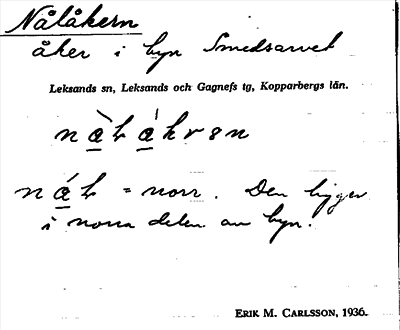 Nålåkern
åker i byn Smedsarvet
Leksands sn, Leksands och Gagnefs tg, Kopparbergs län.
= norr. Den ligger
i norra delen av byn.
ERIK M. CARLSSON, 1936.